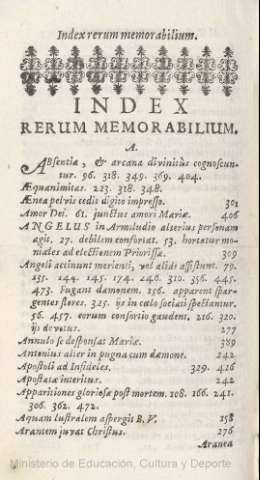 Index rerum memorabilium.
INDEX
RERUM MEMORABILIUM.
A.
ABsentia, & arcana divinitùs cognoscun-
tur. 96. 318. 349. 369. 404.
Æquanimitas. 223. 318. 348.
Ænea pelvis cedit digito impresso. 301
Amor Dei. 61. junctus amori Mariæ. 406
ANGELUS in Armiludio alterius personam
agit. 27. debilem confortat. 53. hortatur mo-
niales ad electionem Priorissæ. 309
Angeli accinunt morienti, vel aliàs assistunt. 70.
135. 144. 145. 174. 246. 310. 356. 445.
473. Fugant dæmonem. 156. apparent spar-
gentes flores. 325. ijs in cœlo sociati spectantur.
56. 457. eorum consortio gaudent. 216. 320.
ijs devotus. 277
Annulo se desponsat Mariæ. 389
Antonius alter in pugna cum dæmone. 242
Apostoli ad Infideles. 329. 416
Apostatæ interitus. 242
Apparitiones gloriosæ post mortem. 108. 166. 241.
306. 362. 472.
Aquam lustralem aspergit B. V. 158
Arantem juvat Christus. 276
Aranea
Ministerio de Educación, Cultura y Deporte